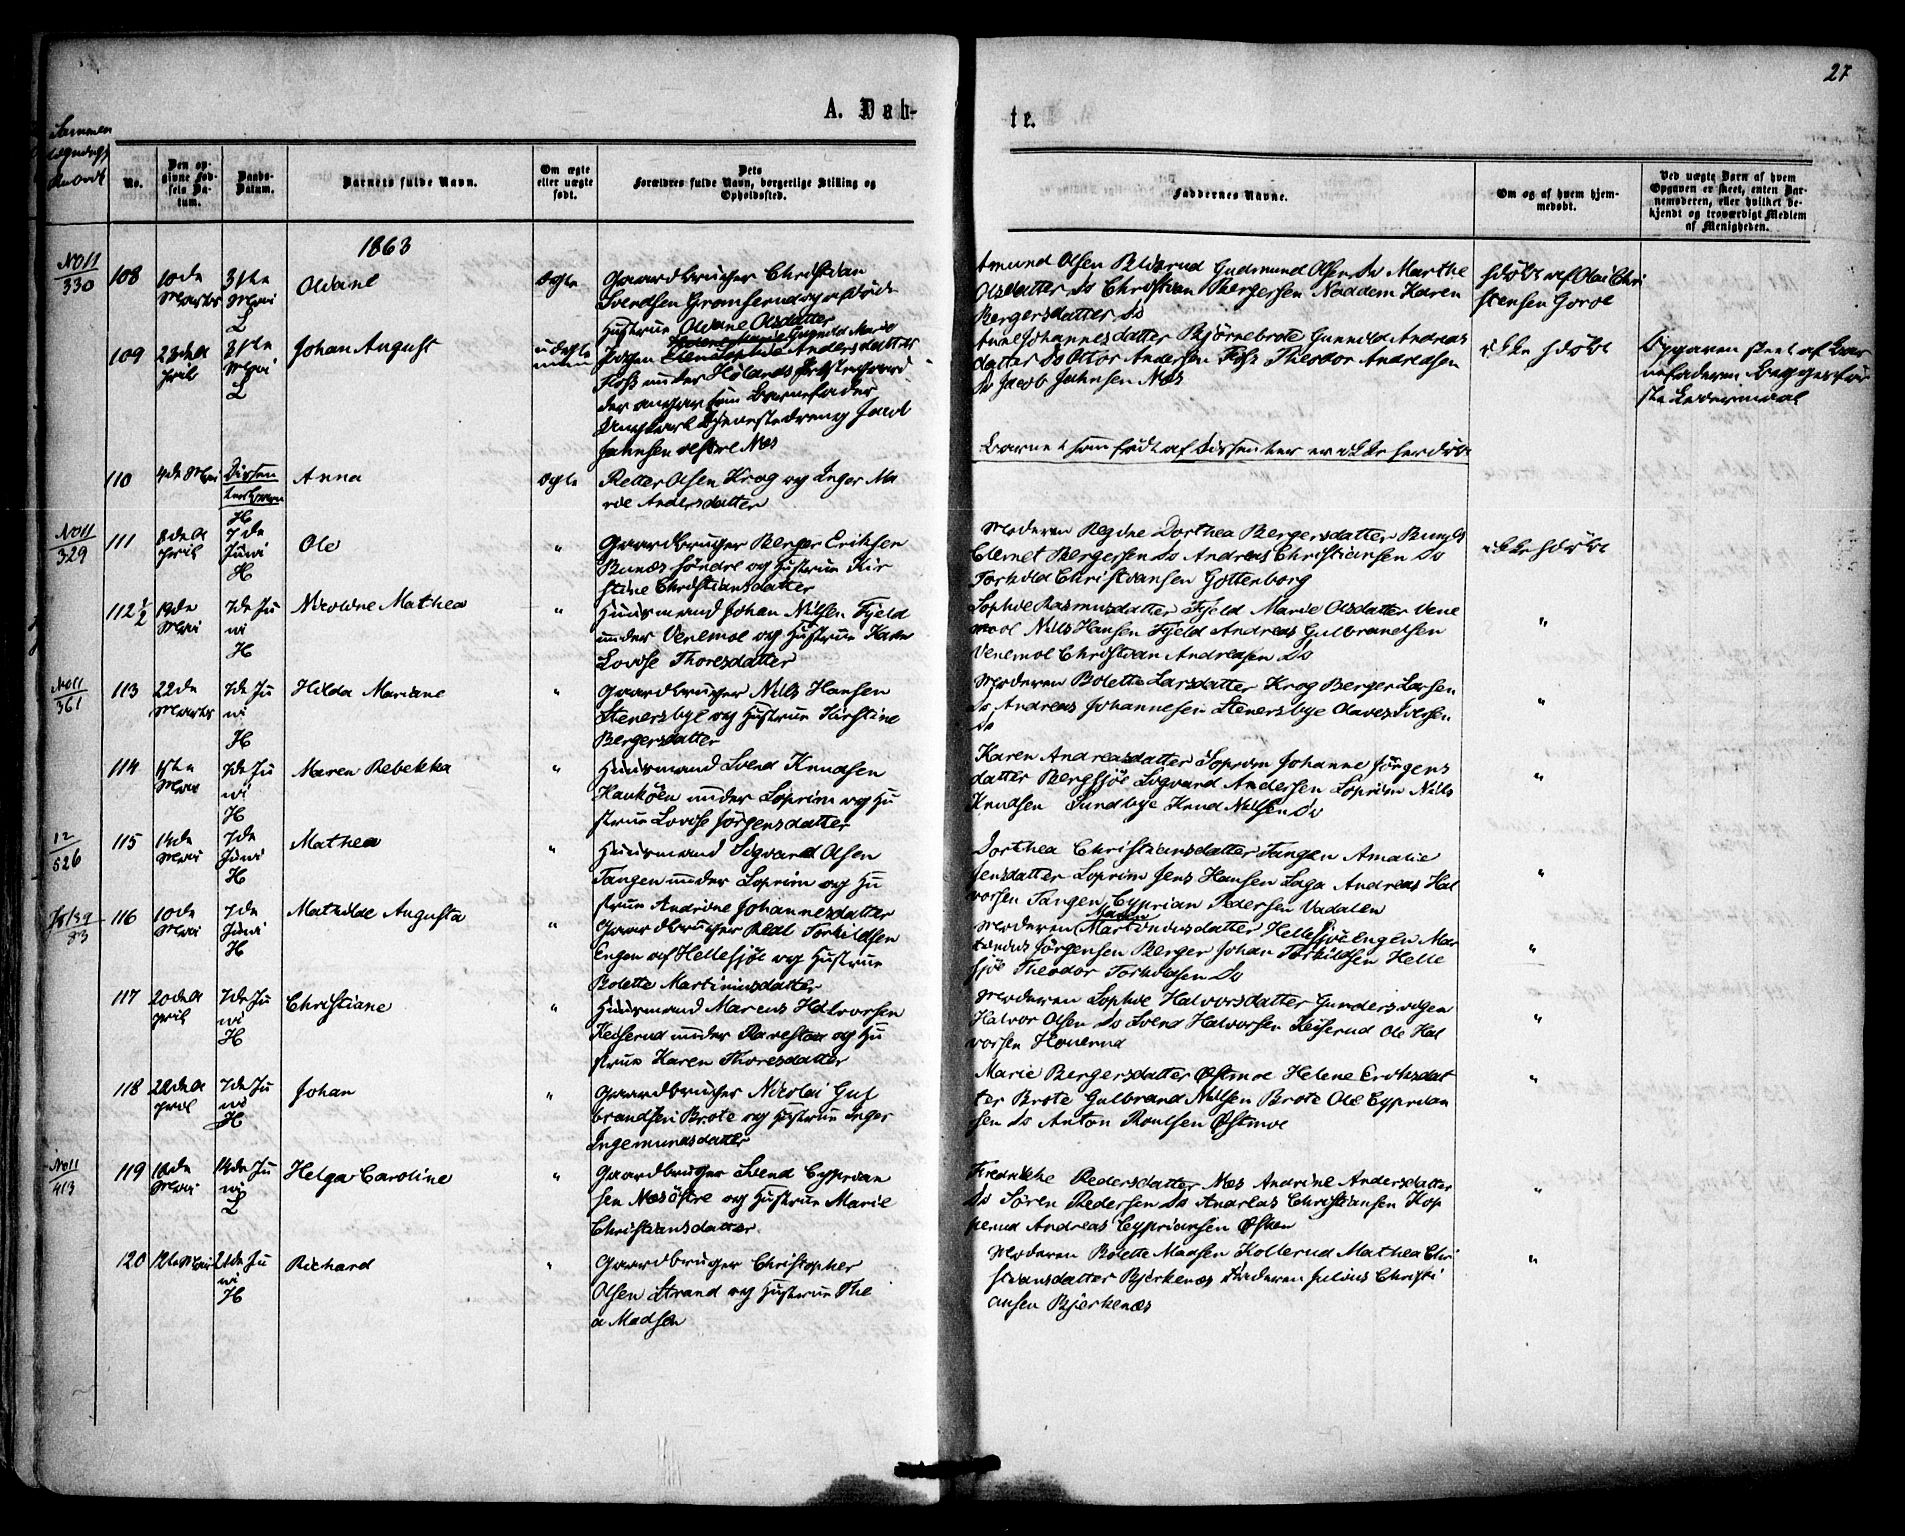 27
A. Døb-
te.
No.
Den op-
givne Fød-
sels Da-
tum.
Daabs-
Datum.
Barnets fulde Navn.
Om ægte
eller uægte
født.
Dets
Forældres fulde Navn, borgerlige Stilling og
Opholdssted.
Faddernes Navne.
Om og af hvem hjem-
medøbt.
Ved uægte Børn af hvem
Opgaven er skeet, enten Bar-
nemoderen, eller hvilket be-
kjendt og troværdigt Medlem
af Menigheden.
1863
No 11
330
108
10de
Marts
31te
Mai
L
Oldine
ægte
Gaardbruger Christian
Svendsen og afdøde
Hustrue Oldine Olsdatter
Amund Olsen Gudmund Olsen Do Marthe
Olsdatter Do Christian Bergersen Naddem Karen
Bergersdatter Do
hdøbt af Olai Chri
stensen
109
23de A
pril
31te
Mai
L
Johan August
udegte
Pigen Andersdatter
under Hølands Præstegaard
der angav som Barnefader
Ungkarl Tjenestedreng Jacob
Jahnsen Næs
Anne Johannesdatter Bjørnebrote Gunnild Andreas
datter Do Ottor Andersen Theodor Andersen
Do Jacob Jahnsen Næs
ikke hdøbt
Opgaven skeet af Bar
nefaderen Begges før
ste Leiermaal
110
4de Mai
Anna
ægte
Petter Olsen Krog og Inger Ma
rie Andersdatter
Barnet som født af Dissenter er ikke her døbt
No 11
329
111
8de A
pril
H
7de
Juni
H
Ole
"
Gaardbruger Berger Eriksen
Bunæs søndre og Hustrue Kir
stine Christiansdatter
Moderen Regine Dorthea Bergersdatter Bunæs
Clemet Bergersen Do Andreas Christiansen Do
Torkild Christiansen Gottenborg
ikke hdøbt
112 1/2
19de
Mai
7de Ju
ni
H
Nicoline Mathea
"
Huusmand Johan Nilsen Fjeld
under Venemoe og Hustrue Karen
Lovise Thoresdatter
Sophie Rasmusdatter Fjeld Marie Olsdatter Vene
moe Nils Hansen Fjeld Andreas Gulbrandsen
Venemoe Christian Andreasen Do
"
No 11
361
113
22de
Marts
7de Ju
ni
H
Hilda Mariane
"
Gaardbruger Nils Hansen
Stenersbye og Hustrue Kirstine
Bergersdatter
Moderen Bolette Larsdatter Krog Berger Larsen
Do Andreas Johannesen Stenersbye Olaves Iversen
Do
"
114
1ste
Mai
7de Ju
ni
H
Maren Rebekka
"
Huusmand Svend Knudsen
under Soprim og Hu
strue Lovise Jørgensdatter
Karen Andreasdatter Soprim Johanne Jørgens
datter Bergsjøe Sigvard Andersen Soprim Nils
Knudsen Sundbye Knud Nilsen Do
"
12
526
115
14de
Mai
7de
Juni
H
Mathea
"
Huusmand Sigvard Olsen
Tangen under Soprim og Hu
strue Andrine Johannesdatter
Dorthea Christiansdatter Tangen Amalie
Jensdatter Soprim Jens Hansen Saga Andreas Hal
vorsen Tangen Cyprian Pedersen Vadalen
"
83
116
10de
Mai
7de
Juni
H
Mathilde Augusta
"
Gaardbruger Torkildsen
Engen af Hellesjøe og Hustrue
Bolette Martiniusdatter
Maren
Moderen Martiniusdatter Hellesjøe Engen Mar
tinius Jørgensen Berger Johan Torkildsen Helle
sjøe Theodor Torkildsen Do
"
117
20de A
pril
7de Ju
ni
H
Christiane
"
Huusmand Marcus Halvorsen
Keiserud under og Hu
strue Karen Thoresdatter
Moderen Sophie Halvorsdatter Gundersvigen
Halvor Olsen Do Svend Halvorsen Keiserud Ole Hal
vorsen
"
118
28de A
pril
7de Ju
ni
H
Johan
"
Gaardbruger Nicolai Gul
brandsen Brote og Hustrue Inger
Ingemundsdatter
Marie Bergersdatter Østmoe Helene Eriksdat
ter Brote Gulbrand Nilsen Brote Ole Cyprian
sen Do Anton Poulsen Østmoe
"
No 11
413
119
18de
Mai
14de Ju
ni
L
Helga Caroline
"
Gaardbruger Svend Cyprian
sen Næs østre og Hustrue Marie
Christiansdatter
Fredrikke Pedersdatter Næs Andrine Andersdatter
Do Søren Pedersen Do Andreas Christiansen Kop
perud Andreas Cypriansen
"
120
12te Mai
21de Ju
ni
H
Richard
"
Gaardbruger Christopher
Olsen Strand og Hustrue The
a Madsen
Moderen Bolette Madsen Kollerud Mathea Chri
stiansdatter Bjerkenæs Faderen Julius Christi
ansen Bjerkenæs
"